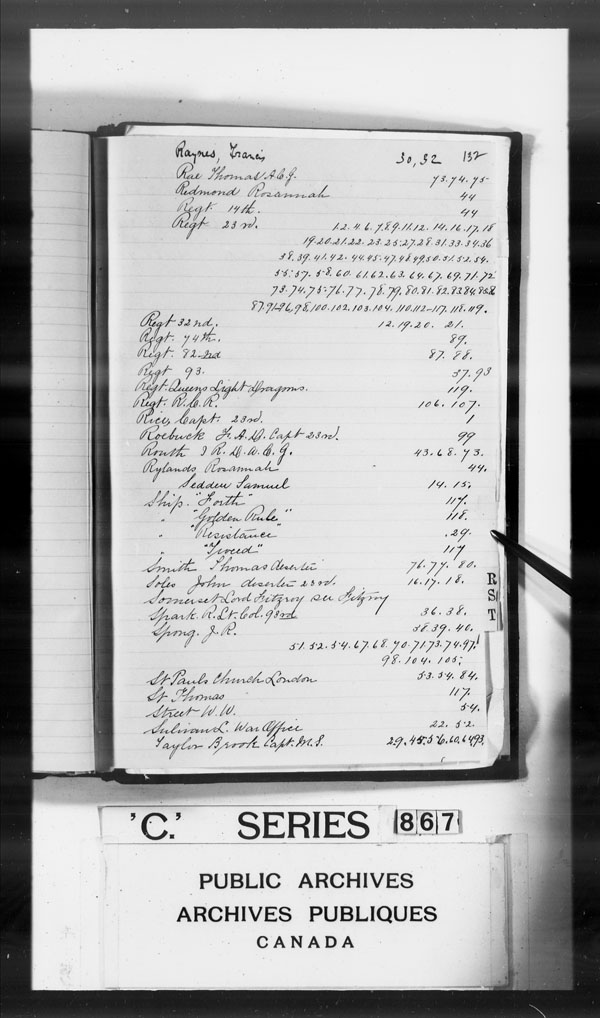 Raynes, Francis 30, 32 132
Rae Thomas A.C.G. 73.74.75
Redmond Rosannah 44
Regt. 14th. 44
Regt 23rd. 1.2.4.6.7.8.9.11.12.14.16.17.18
19.20.21.22.23.25.27.28.31.33.34.36
38.39.41.42.44.45.47.48.49.50.51.52.54.
55.57.58.60.61.62.63.64.67.69.71.72
73.74.75.76.77.78.79.80.81.82.83.84.85.86
87.91.96.98.100.102.103.104.110.112-117.118.119.
Regt 32nd. 12.19.20. 21.
Regt. 74th. 89.
Regt. 82nd 87.88.
Regt 93. 37.93
Regt. Queens Light Dragoons. 119.
Regt. R.C.R. 106.107.
Rice, Capt. 23rd. 1
Roebuck F.A.D. Capt 23rd. 99
Routh J R. D.A.C.G. 43.68.73.
Rylands Rosannah 44.
Seddew Samuel 14.15.
Ship "Forth" 117.
" "Golden Rule" 118.
" "Resistance" 29.
" 117
Smith Thomas deserter 76.77.80.
Soles John deserter 23rd. 16.17.18.
Somerset Lord Fitzroy see Fitzroy
Spark. R. Lt. Col. 93rd 36.38.
Spong. J.R. 38.39.40.
51.52.54.67.68.70.71.73.74.97.
98.104.105.
St Pauls Church London 53.54.84.
St. Thomas 117.
Street W.W. 54.
Sulivan L. War Office 22.52.
Taylor Brook Capt. M.S. 29.45.56.60.64.93.
R
S
T
'C.' SERIES 867
PUBLIC ARCHIVES
ARCHIVES PUBLIQUES
CANADA